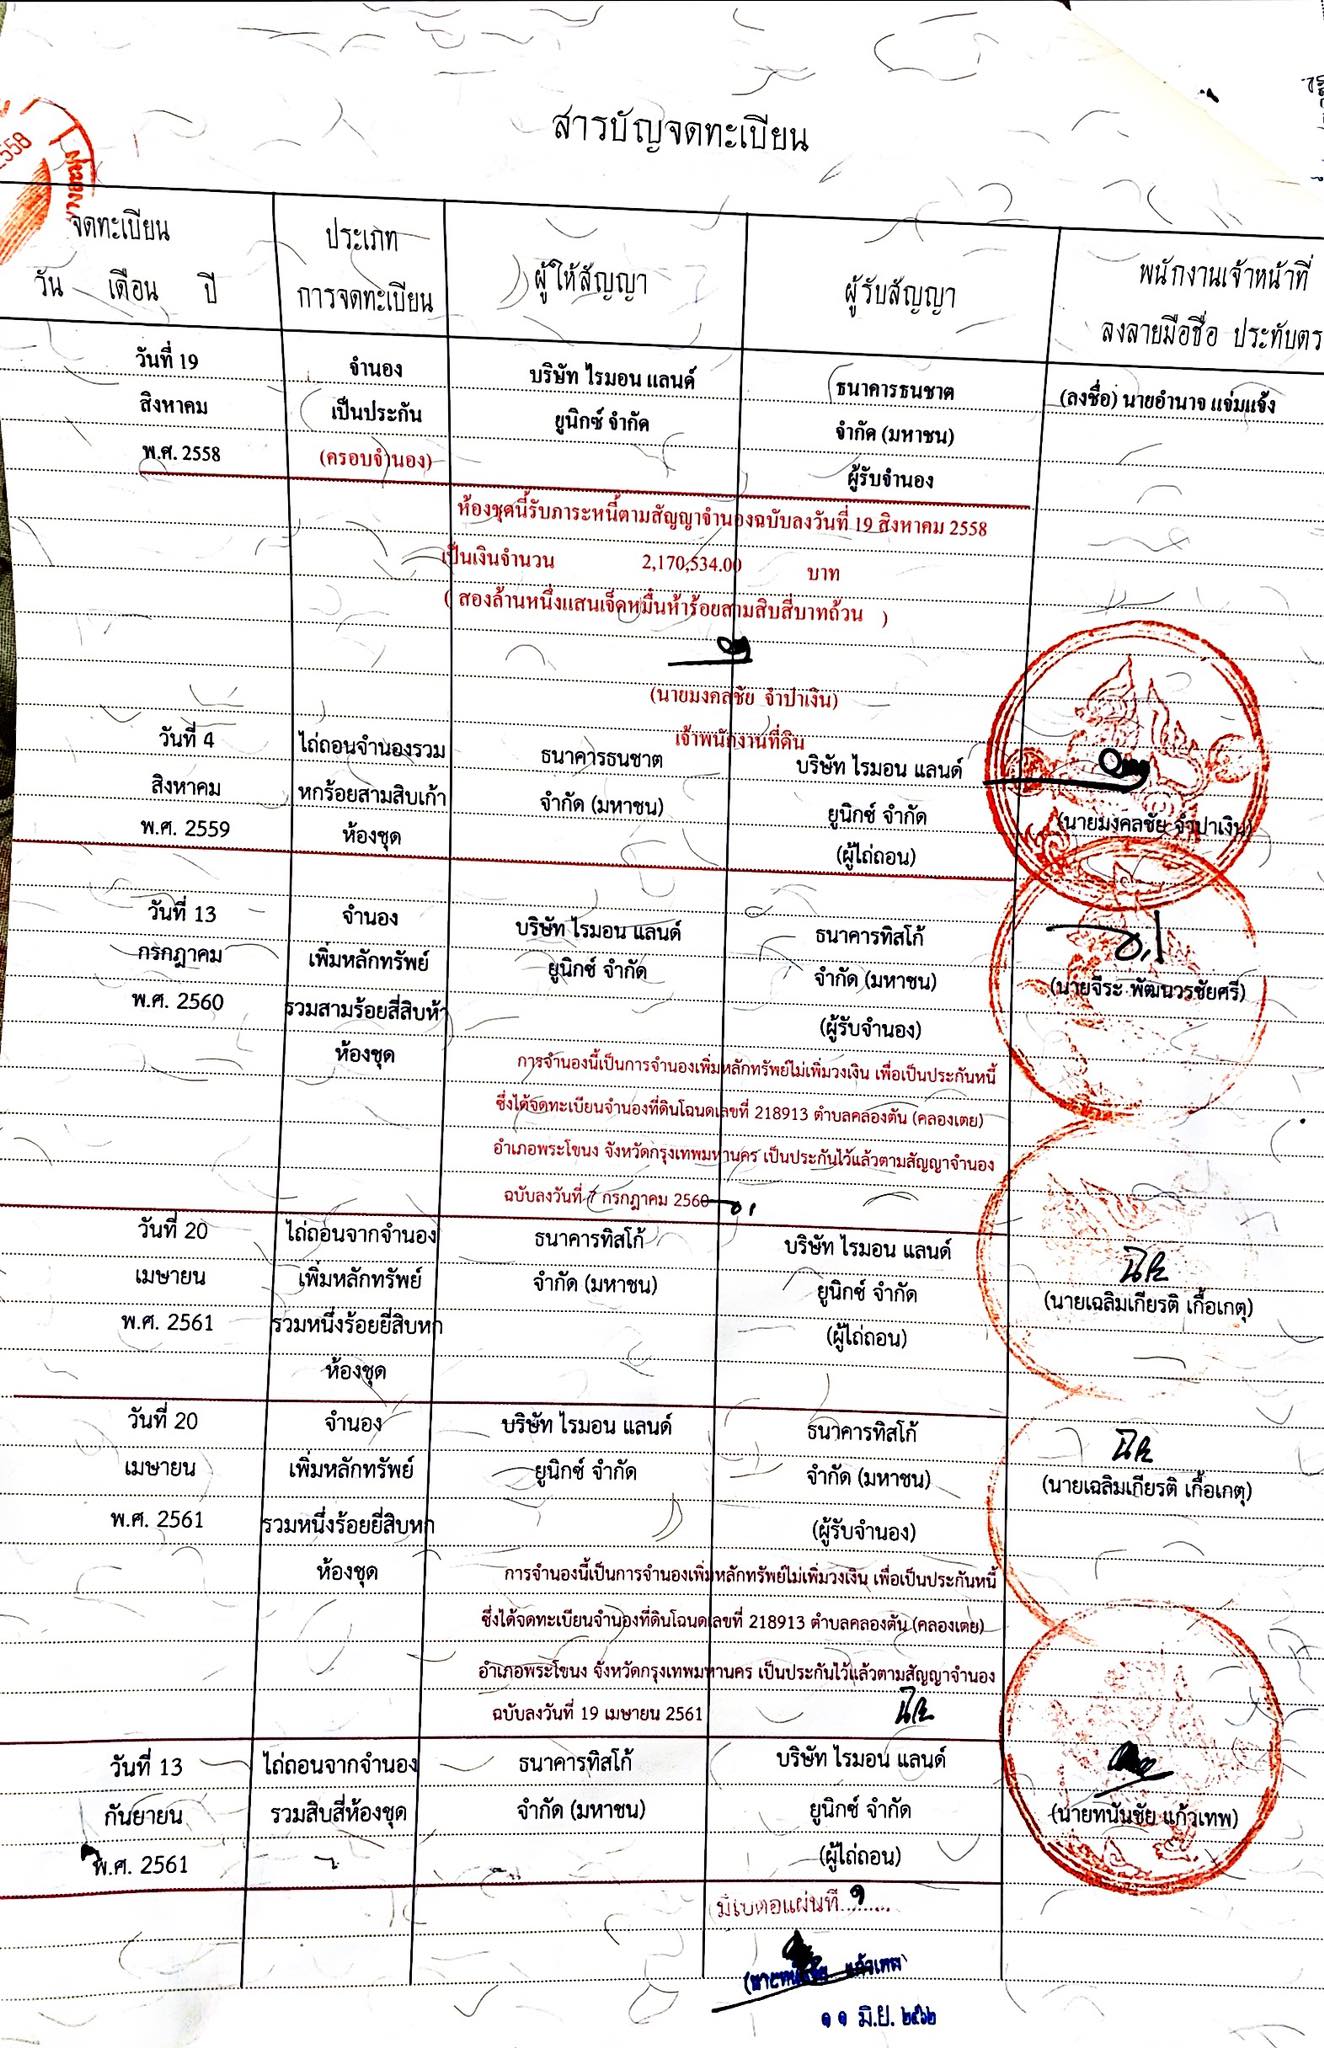 2558
สารบัญจดทะเบียน
จดทะเบียน
วัน เดือน ปี
ประเภท
การจดทะเบียน
ผู้ให้สัญญา
ผู้รับสัญญา
พนักงานเจ้าหน้าที่
ลงลายมือชื่อ ประทับตร
วันที่ 19
สิงหาคม
พ.ศ. 2558
จำนอง
เป็นประกัน
(ครอบจำนอง)
บริษัท ไรมอน แลนด์
ยูนิกซ์ จำกัด
ธนาคารธนชาต
จำกัด (มหาชน)
ผู้รับจำนอง
(ลงชื่อ) นายอำนาจ แจ่มแจ้ง
ห้องชุดนี้รับภาระหนี้ตามสัญญาจำนองฉบับลงวันที่ 19 สิงหาคม 2558
เป็นเงินจำนวน 2,170,534.00 บาท
( สองล้านหนึ่งแสนเจ็ดหมื่นห้าร้อยสามสิบสี่บาทถ้วน )
(นายมงคลชัย จำปาเงิน)
เจ้าพนักงานที่ดิน
วันที่ 4
สิงหาคม
พ.ศ. 2559
ไถ่ถอนจำนองรวม
หกร้อยสามสิบเก้า
ห้องชุด
ธนาคารธนชาต
จำกัด (มหาชน)
บริษัท ไรมอน แลนด์
ยูนิกซ์ จำกัด
(ผู้ไถ่ถอน)
(นายมงคลชัย จำปาเงิน)
วันที่ 13
กรกฎาคม
พ.ศ. 2560
จำนอง
เพิ่มหลักทรัพย์
รวมสามร้อยสี่สิบห้า
ห้องชุด
บริษัท ไรมอน แลนด์
ยูนิกซ์ จำกัด
ธนาคารทิสโก้
จำกัด (มหาชน)
(ผู้รับจำนอง)
(นายจีระ พัฒนวรชัยศรี)
การจำนองนี้เป็นการจำนองเพิ่มหลักทรัพย์ไม่เพิ่มวงเงิน เพื่อเป็นประกันหนี้
ซึ่งได้จดทะเบียนจำนองที่ดินโฉนดเลขที่ 218913 ตำบลคลองตัน (คลองเตย)
อำเภอพระโขนง จังหวัดกรุงเทพมหานคร เป็นประกันไว้แล้วตามสัญญาจำนอง
ฉบับลงวันที่ 7 กรกฎาคม 2560
วันที่ 20
เมษายน
พ.ศ. 2561
ไถ่ถอนจากจำนอง
เพิ่มหลักทรัพย์
รวมหนึ่งร้อยยี่สิบหก
ห้องชุด
ธนาคารทิสโก้
จำกัด (มหาชน)
บริษัท ไรมอน แลนด์
ยูนิกซ์ จำกัด
(ผู้ไถ่ถอน)
(นายเฉลิมเกียรติ เกื้อเกตุ)
วันที่ 20
เมษายน
พ.ศ. 2561
จำนอง
เพิ่มหลักทรัพย์
รวมหนึ่งร้อยยี่สิบหก
ห้องชุด
บริษัท ไรมอน แลนด์
ยูนิกซ์ จำกัด
ธนาคารทิสโก้
จำกัด (มหาชน)
(ผู้รับจำนอง)
(นายเฉลิมเกียรติ เกื้อเกตุ)
การจำนองนี้เป็นการจำนองเพิ่มหลักทรัพย์ไม่เพิ่มวงเงิน เพื่อเป็นประกันหนี้
ซึ่งได้จดทะเบียนจำนองที่ดินโฉนดเลขที่ 218913 ตำบลคลองตัน (คลองเตย)
อำเภอพระโขนง จังหวัดกรุงเทพมหานคร เป็นประกันไว้แล้วตามสัญญาจำนอง
ฉบับลงวันที่ 19 เมษายน 2561
วันที่ 13
กันยายน
พ.ศ. 2561
ไถ่ถอนจากจำนอง
รวมสิบสี่ห้องชุด
ธนาคารทิสโก้
จำกัด (มหาชน)
บริษัท ไรมอน แลนด์
ยูนิกซ์ จำกัด
(ผู้ไถ่ถอน)
(นายทนันชัย แก้วเทพ)
มีใบต่อแผ่นที่ ๑
แก้วเทพ
๑๑ มิ.ย. ๒๕๖๒